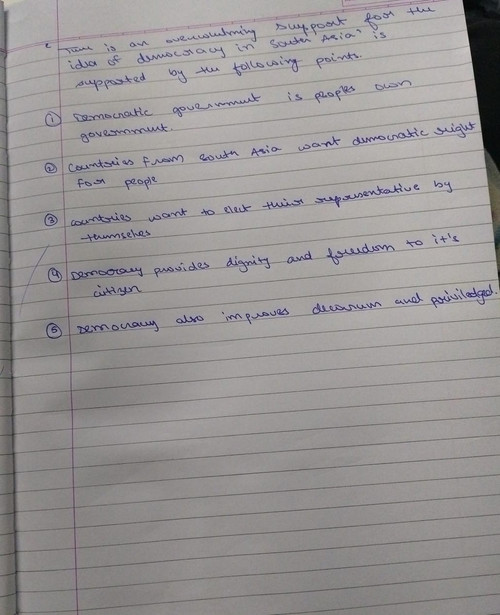 " There is an overwhelming support for the
idea of democracy in South Asia" is
supported by the following points.
① Democratic government is peoples own
government.
② Countries from South Asia want democratic right
for people
③ countries want to elect their representative by
themseles
④ Democracy provides dignity and freedom to it's
citizen
⑤ Democracy also improves decorum and priviledged.